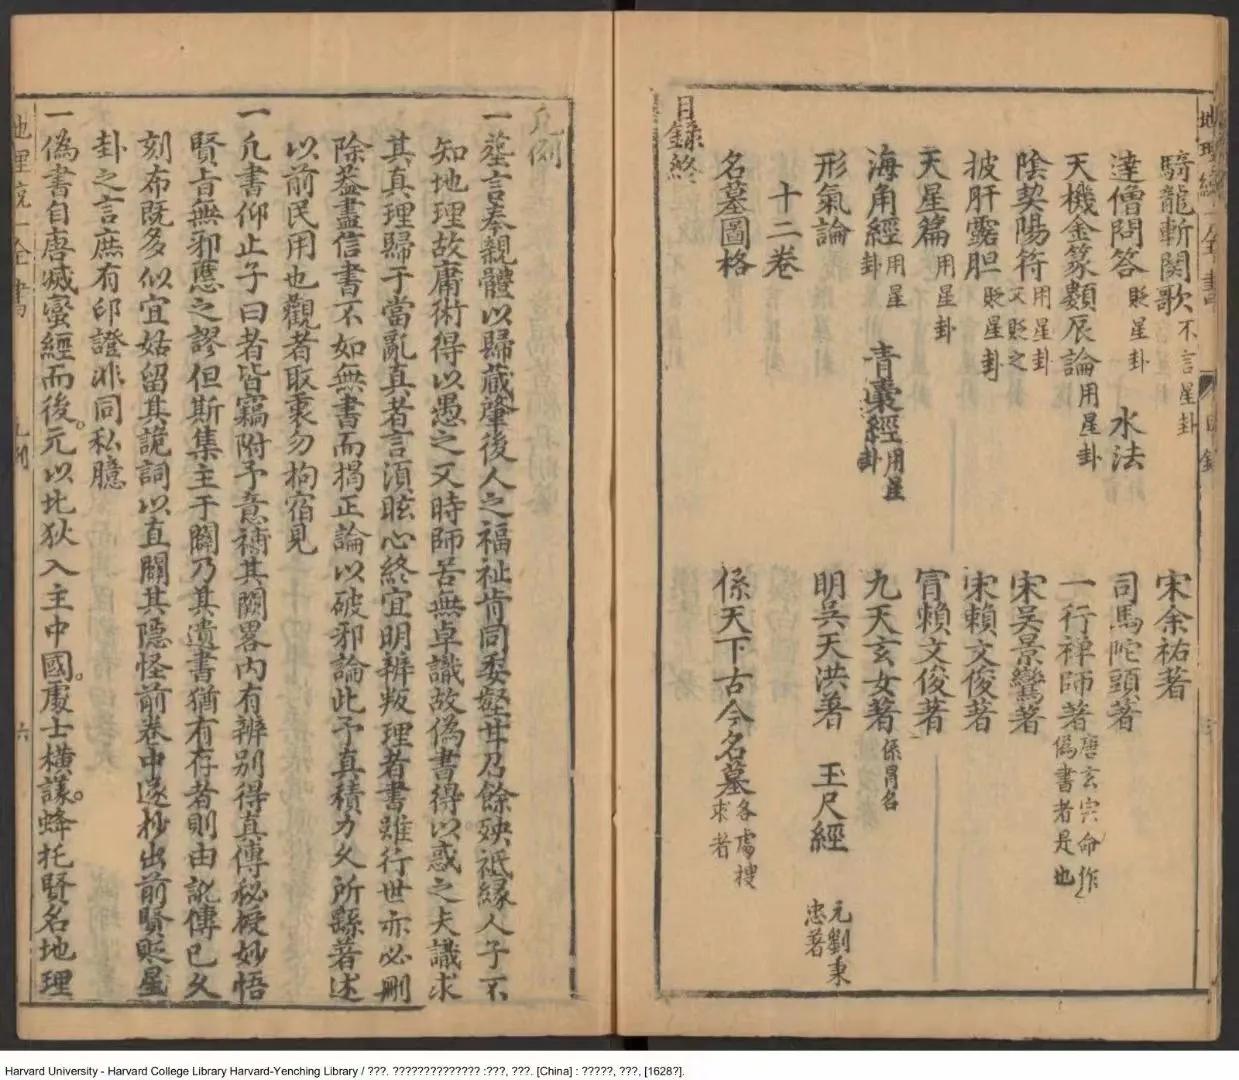 地理統一全書
目錄
騎龍斬関歌 不言星卦 宋余祐著
達僧問答 貶星卦 水法 司馬陀頭著
天機金篆類辰論 用星卦 一行禅師著 唐玄宗命作偽書者是也
陰契陽符 用星卦又貶之 宋吳景鸞著
披肝露胆 貶星卦 宋賴文俊著
天星篇 用星卦 賴文俊著
海角經 用星卦 青囊經 用星卦 九天玄女著 係冐名
形氣論 明吳天洪著 玉尺經 元劉秉忠著
十二卷
名墓圖格 係天下古今名墓 各處搜求者
目錄終
凡例
一塟言奉親體以歸藏肇後人之福祉肯同委壑廿乃餘殃祗緣人子不
知地理故庸術得以愚之又時師苦無卓識故偽書得以惑之夫識求
其真理歸于當亂真者言須眩心終宜明辨叛理者書雖行世亦必刪
除葢盡信書不如無書而揭正論以破邪論此予真積力久所繇著述
以前民用也觀者取裏勿拘宿見
一凢書仰止子曰者皆竊附予意補其闕畧內有辨别得真傳秘授妙悟
賢旨無邪應之謬但斯集主于闢乃其遺書猶有存者則由訛傳已久
刻布既多似宜姑留其詭詞以直闢其隐怪前卷中遂抄出前賢貶星
卦之言庶有印證非同私臆
一偽書自唐滅蠻經而後。元以北狄入主中國。處士横議。蜂托賢名地理
地理統一全書
凡例
六
Harvard University - Harvard College Library Harvard-Yenching Library / ???. ?????????????? :???, ???. [China] : ?????, ???, [1628?].